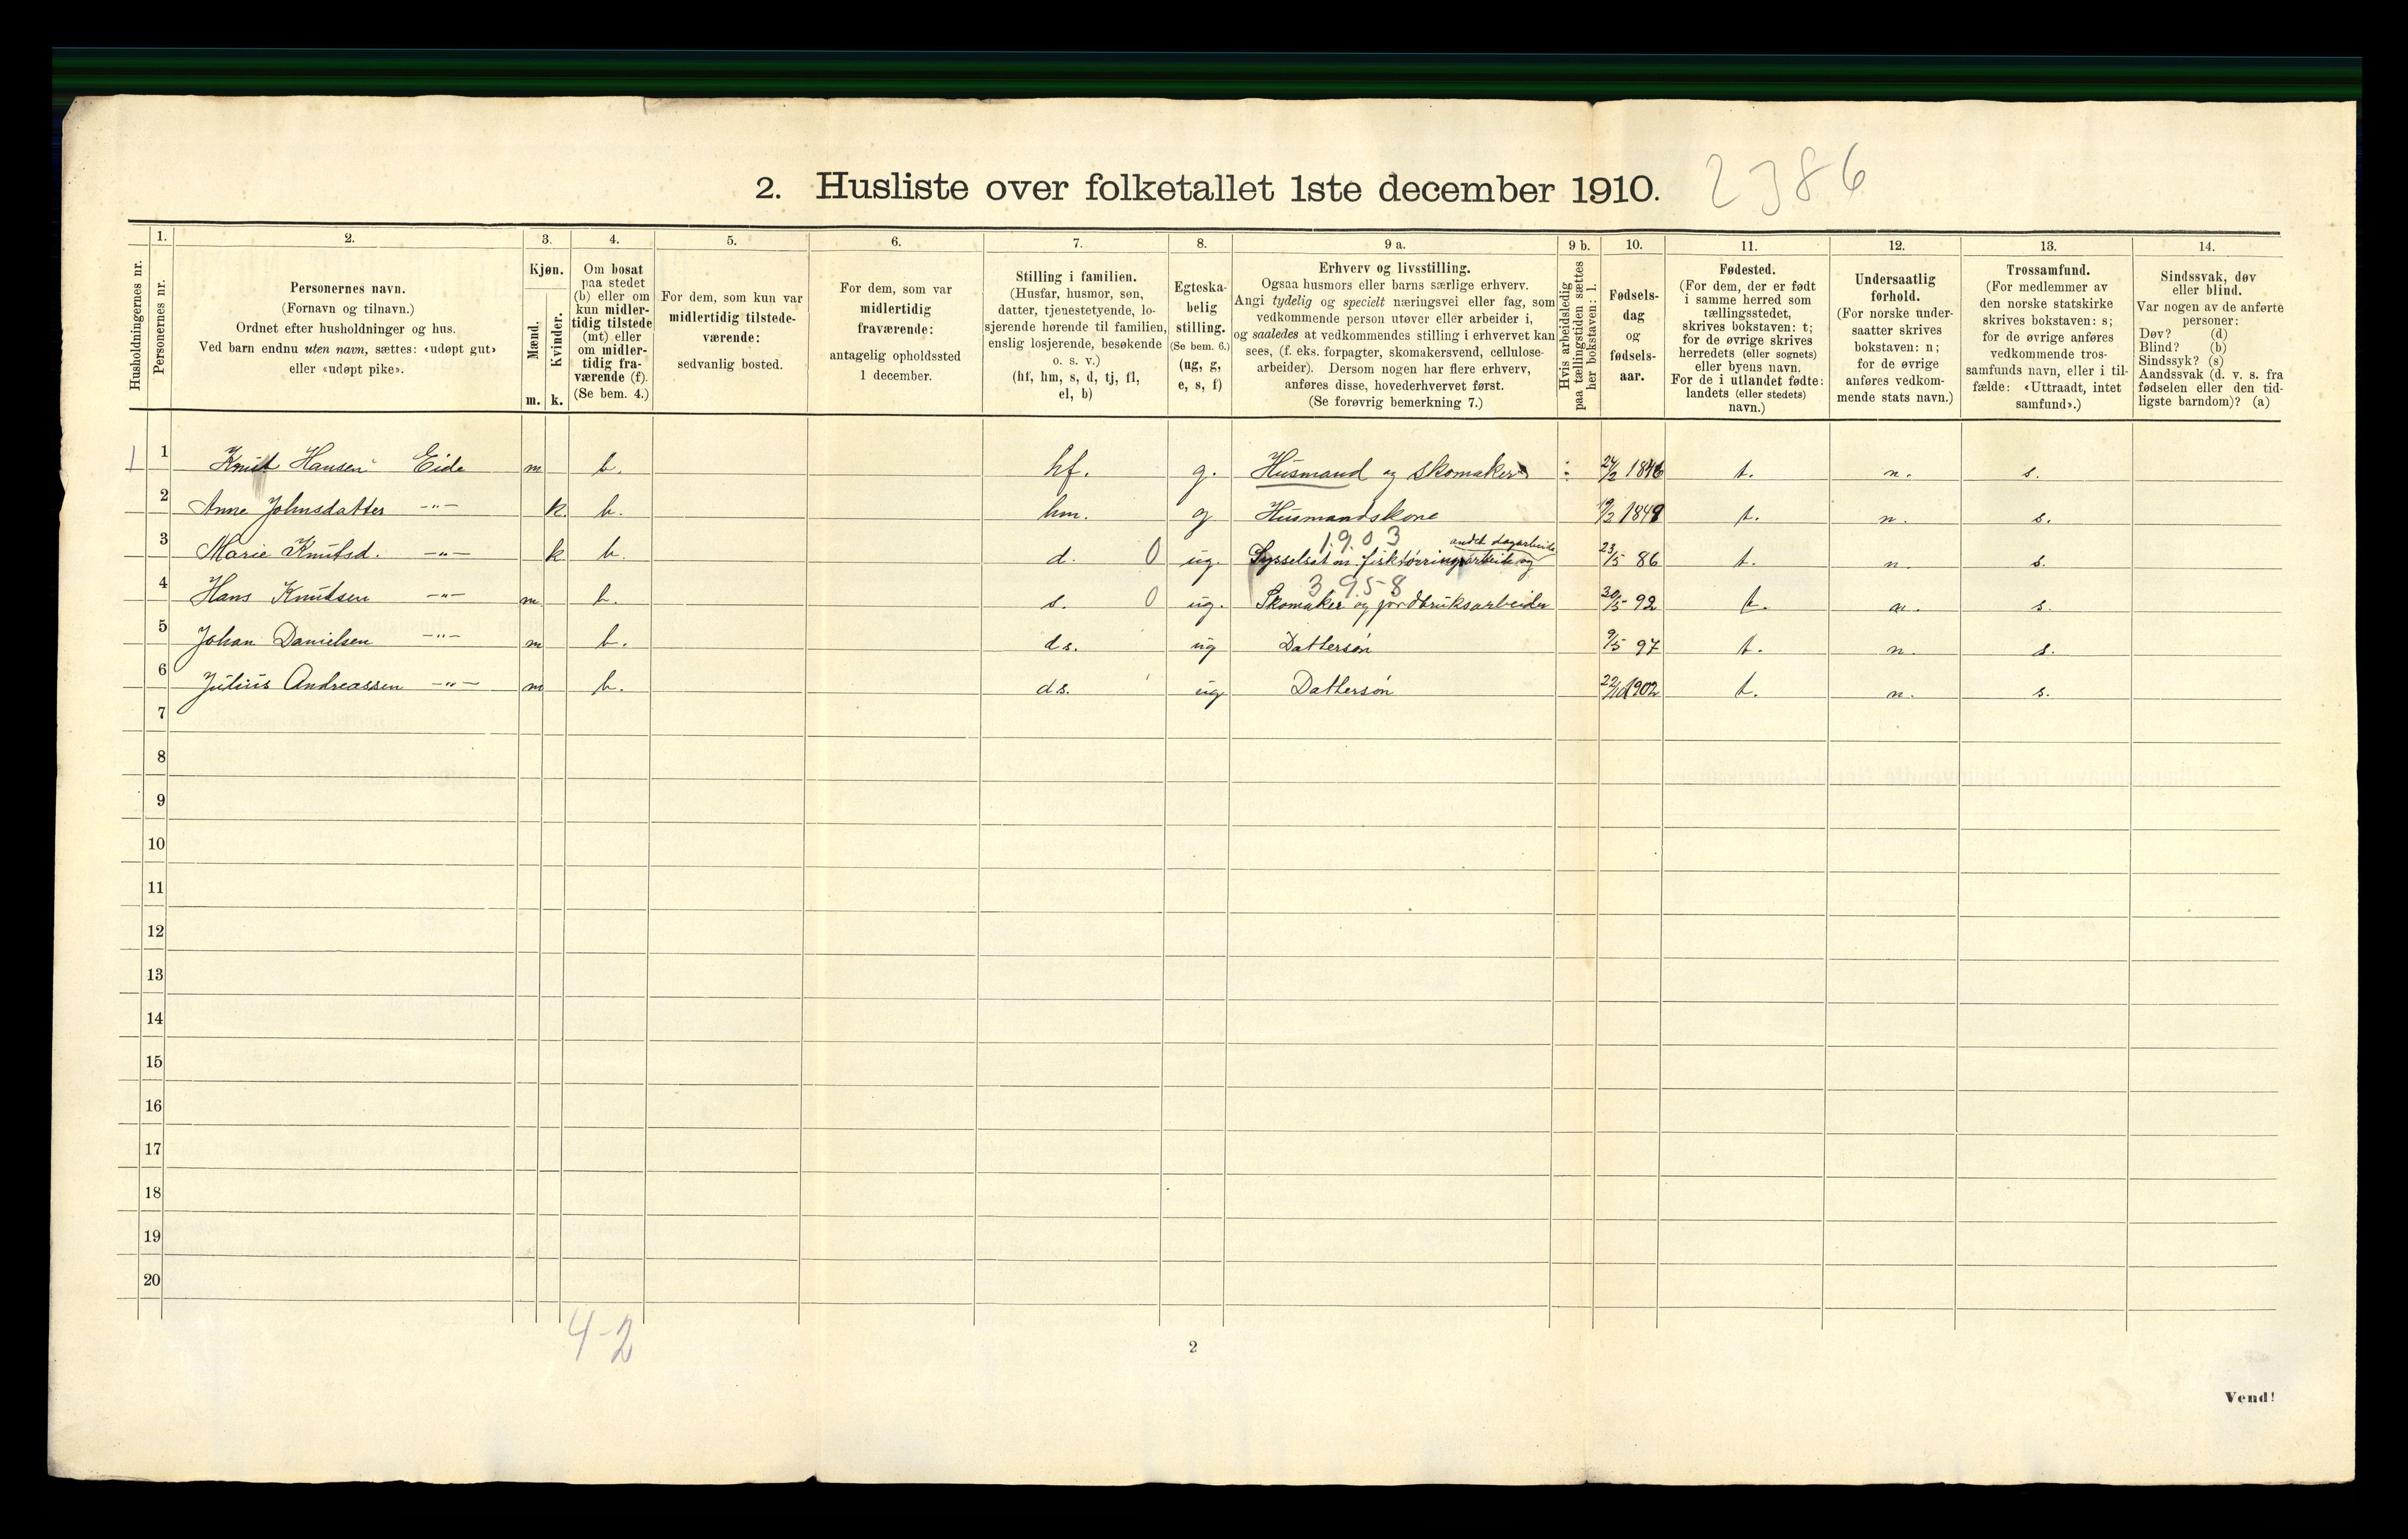 2. Husliste over folketallet 1ste december 1910. 2386
Husholdningernes nr.
1.
Personernes nr.
2.
Personernes navn.
(Fornavn og tilnavn.)
Ordnet efter husholdninger og hus.
Ved barn endnu uten navn, sættes: «udøpt gut»
eller «udøpt pike».
3.
Kjøn.
Mænd.
Kvinder.
m. k.
4.
Om bosat
paa stedet
(b) eller om
kun midler-
tidig tilstede
(mt) eller
om midler-
tidig fra-
værende (f).
(Se bem. 4.)
5.
For dem, som kun var
midlertidig tilstede-
værende:
sedvanlig bosted.
6.
For dem, som var
midlertidig
fraværende:
antagelig opholdssted
1 december.
7.
Stilling i familien.
(Husfar, husmor, søn,
datter, tjenestetyende, lo-
sjerende hørende til familien,
enslig losjerende, besøkende
o. s. v.)
(hf, hm, s, d, tj, fl,
el, b)
8.
Egteska-
belig
stilling.
(Se bem. 6.)
(ug, g,
e, s, f)
9 a.
Erhverv og livsstilling.
Ogsaa husmors eller barns særlige erhverv.
Angi tydelig og specielt næringsvei eller fag, som
vedkommende person utøver eller arbeider i,
og saaledes at vedkommendes stilling i erhvervet kan
sees, (f. eks. forpagter, skomakersvend, cellulose-
arbeider). Dersom nogen har flere erhverv,
anføres disse, hovederhvervet først.
(Se forøvrig bemerkning 7.)
9 b.
Hvis arbeidsledig
paa tællingstiden sættes
her bokstaven: l.
10.
Fødsels-
dag
og
fødsels-
aar.
11.
Fødested.
(For dem, der er født
i samme herred som
tællingsstedet,
skrives bokstaven: t;
for de øvrige skrives
herredets (eller sognets)
eller byens navn.
For de i utlandet fødte:
landets (eller stedets)
navn.)
12.
Undersaatlig
forhold.
(For norske under-
saatter skrives
bokstaven: n;
for de øvrige
anføres vedkom-
mende stats navn.)
13.
Trossamfund.
(For medlemmer av
den norske statskirke
skrives bokstaven: s;
for de øvrige anføres
vedkommende tros-
samfunds navn, eller i til-
fælde: «Uttraadt, intet
samfund».)
14.
Sindssvak, døv
eller blind.
Var nogen av de anførte
personer:
Døv? (d)
Blind? (b)
Sindssyk? (s)
Aandssvak (d. v. s. fra
fødselen eller den tid-
ligste barndom)? (a)
1 1 Knut Hansen Eide m b. hf. g. Husmand og skomaker 24/2 1846 t. n. s.
2 Anne Johnsdatter -"- k b. hm. g Husmandskone 1849 t. n. s.
1903 andet dagarbeide
3 Marie Knutsd. -"- k b. d. 0 ug. Sysselsat m. fisktørringsarbeide og 23/5 86 t. n. s.
3958
4 Hans Knutsen -"- m b. s. 0 ug. Skomaker og jordbruksarbeider 30/5 92 t. n. s.
5 Johan Danielsen -"- m b. ds. ug Dattersøn 9/5 97 t. n. s.
6 Julius Andreassen -"- m b. ds. ug Dattersøn 22/10 1902 t. n. s.
7
8
9
10
11
12
13
14
15
16
17
18
19
20
4-2
2
Vend!